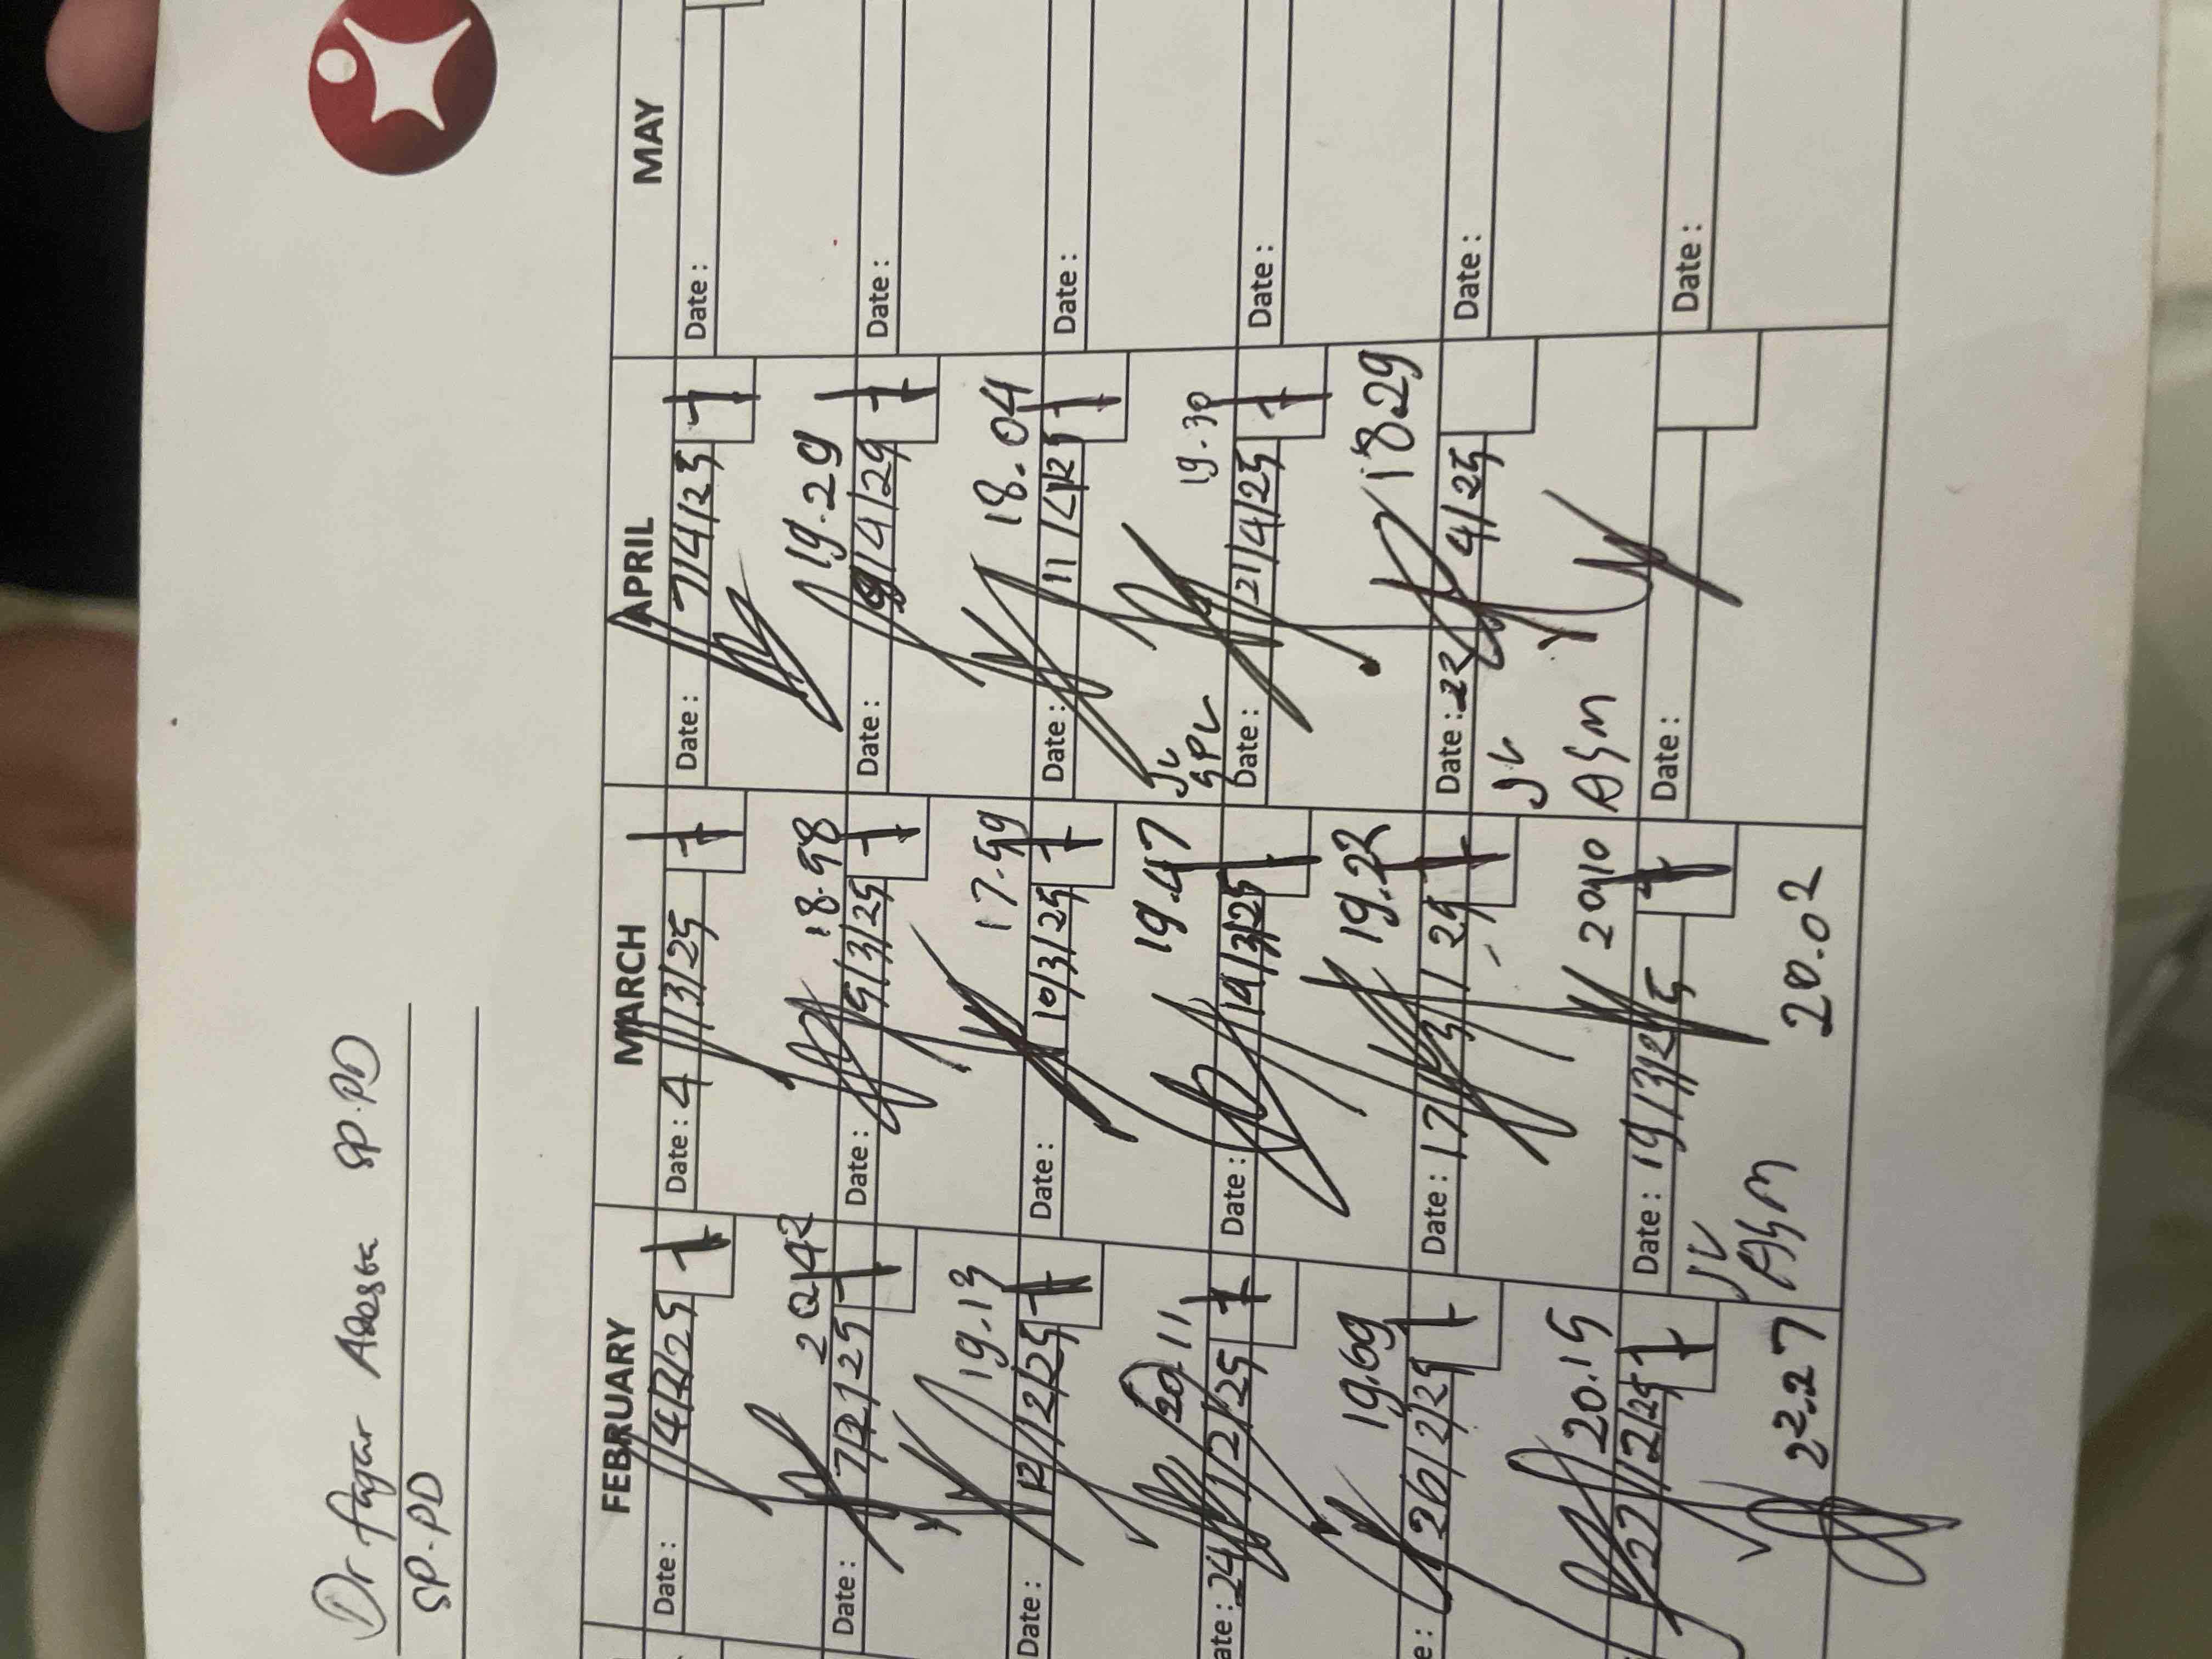 Dr Fajar Adessa SP.PD
SP.PD
FEBRUARY MARCH APRIL MAY
Date: 4/2/25 1 Date: 4/3/25 1 Date: 7/4/25 1 Date:
20.42 18.58 19.29
Date: 7/2/25 1 Date: 5/3/25 1 Date: 9/4/25 1 Date:
19.13 17.59 18.04
Date: 12/2/25 1 Date: 10/3/25 1 Date: 11/4/25 1 Date:
20.11 19.47 JV SPV 19.30
ate: 24/2/25 1 Date: 14/3/25 1 Date: 21/4/25 1 Date:
19.69 19.22 1829
e: 26/2/25 1 Date: 17/3/25 1 Date: 4/25 Date:
20.15 2010 JV ASM
27/2/25 1 Date: 19/3/25 1 Date: Date:
22.27 JV ASM 20.02